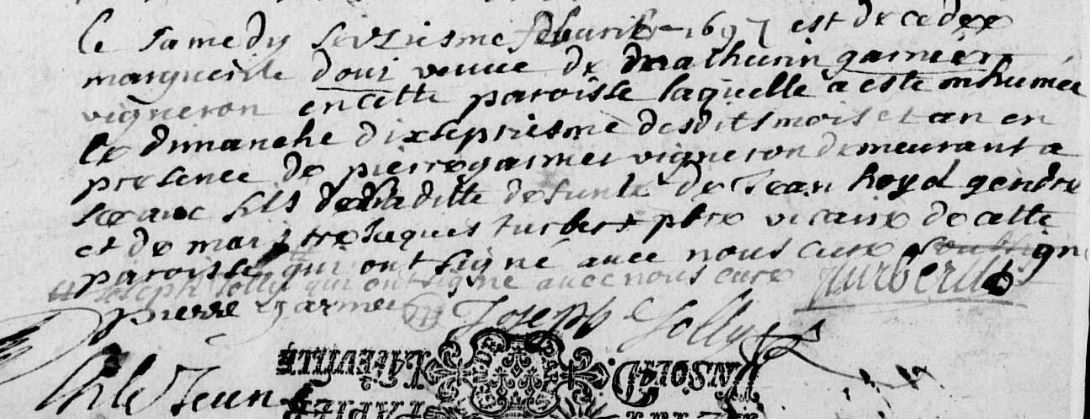 le samedy seiziesme febvrier 1697 est decedee
marguerite doui veuve de mathurin garnier
vigneron en cette paroisse laquelle a esté inhumée
le dimanche dixseptiesme desdits mois et an en
presence de pierre garnier vigneron demeurant a
fils de laditte defunte de Jean hoyd gendre
et de maistre Jaques turbert pbre vicaire de cette
paroisse qui ont signé avec nous curé
Joseph Jolly qui ont signe avec nous cure turbert
pierre garnier Joseph Jolly
le Jeune